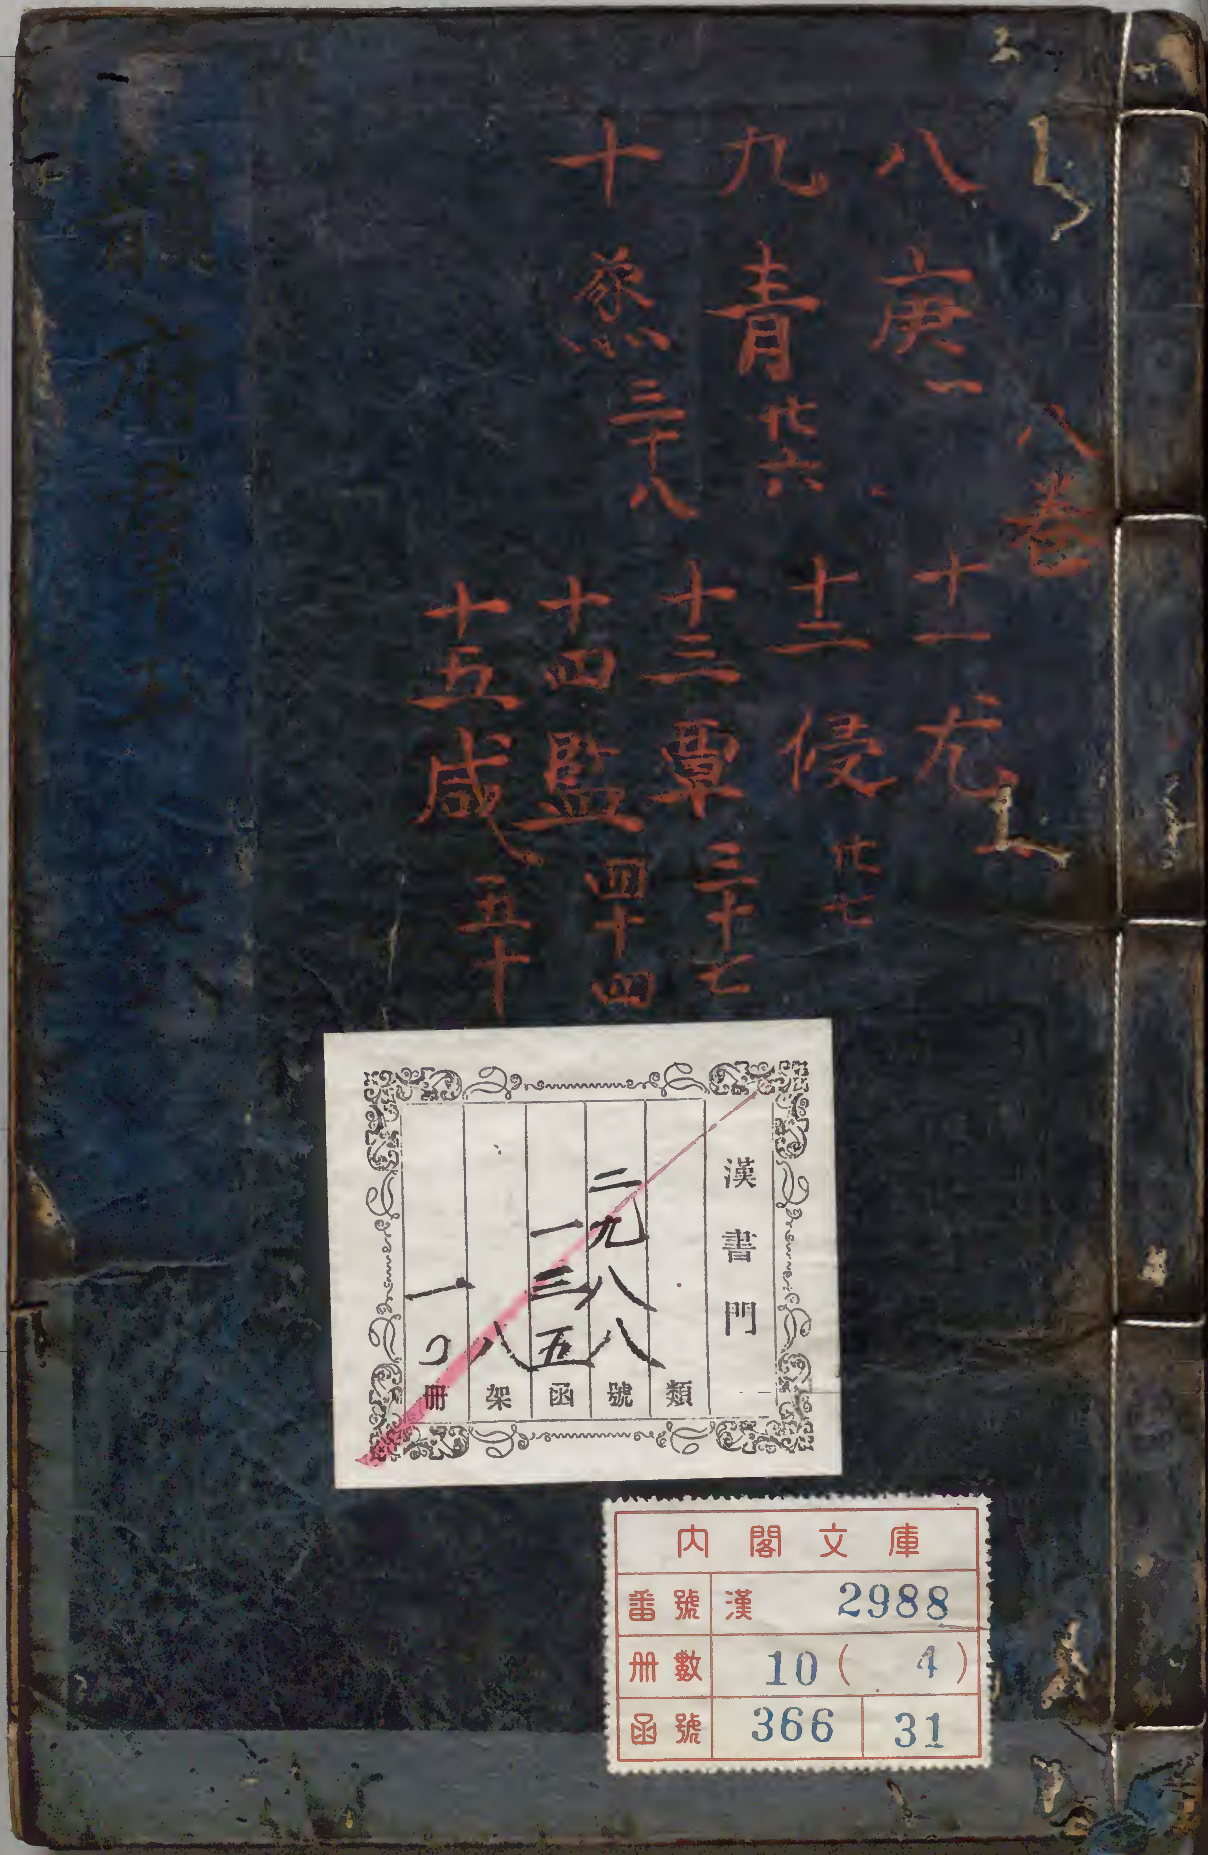 八卷
八庚 一
九青 廿六
十蒸 三十八
十一尤
十二侵 廿七
十三覃 三十七
十四監 四十四
十五咸 五十
韻府羣玉
漢書門
類
二九八八號
一三五函
八架
一〇冊
内閣文庫
番號 漢 2988
册數 10(4)
函號 366 31